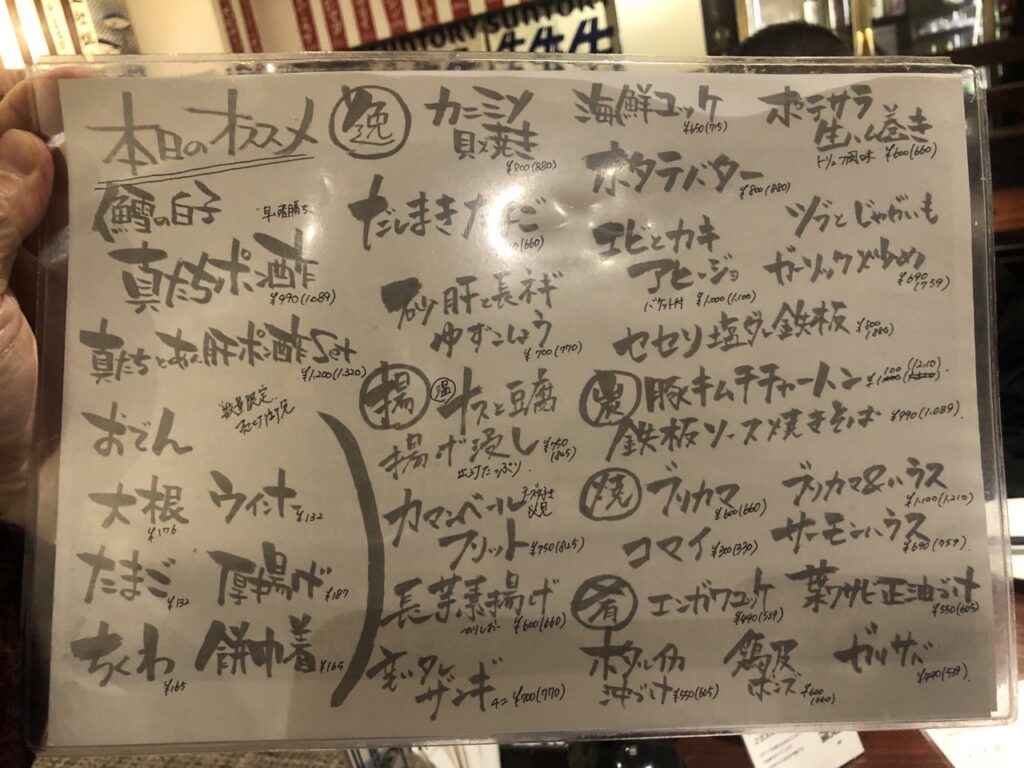 SUNTORY SUNTORY
本日のオススメ
鱈の白子
早い者勝ち
真たちポン酢
¥990(1.089)
真たちとあん肝ポン酢Set
¥1,200(1.320)
数量限定
おでん
大根 ¥176
ウィンナー ¥132
たまご ¥132
厚揚げ ¥187
ちくわ ¥165
餅巾着 ¥165
逸
カニミソ
貝焼き
¥800(880)
だしまきたまご
(660)
砂肝と長ネギ
ゆずこしょう
¥700(770)
揚
温 ナスと豆腐
揚げ浸し ¥750(825)
カマンベール
チーズ好き
必見
フリット ¥750(825)
長芋素揚げ
¥600(660)
ザンギ 4コ ¥700(770)
海鮮ユッケ
¥650(715)
ホタテバター
¥800(880)
エビとカキ
アヒージョ
バケット付 ¥1,000(1,100)
セセリ塩ダレ鉄板 ¥800(880)
ポテサラ
生ハム巻き
トリュフ風味 ¥600(660)
ツブとじゃがいも
ガーリック炒め
¥690(759)
豚キムチチャーハン ¥1,100(1,210)
鉄板ソース焼きそば ¥990(1.089)
焼
ブリカマ
¥600(660)
ブリカマ&ハラス
¥1,100(1,210)
コマイ ¥300(330)
サーモンハラス
¥690(759)
肴
エンガワユッケ
¥490(539)
葉ワサビ正油づけ
¥550(605)
ホタルイカ
沖づけ ¥550(605)
鶏皮
ポンズ ¥600(660)
¥490(539)